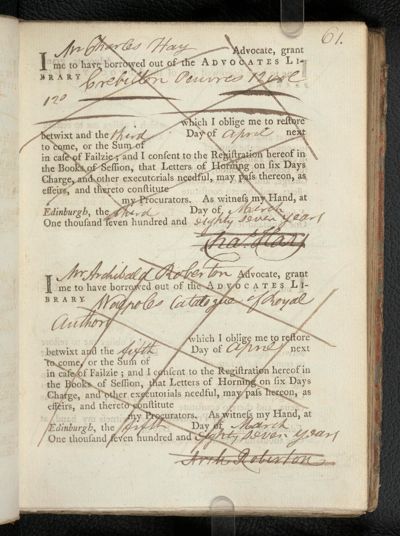 61.
I Mr Charles Hay Advocate, grant
me to have borrowed out of the ADVOCATES LI-
BRARY Crebillon Oeuvres 12 vol
12o
which I oblige me to reſtore
betwixt and the third Day of April next
to come, or the Sum of
in caſe of Failzie; and I conſent to the Regiſtration hereof in
the Books of Seſſion, that Letters of Horning on ſix Days
Charge, and other executorials needful, may paſs thereon, as
effeirs, and thereto conſtitute
my Procurators. As witneſs my Hand, at
Edinburgh, the third Day of March
One thouſand ſeven hundred and eighty seven years
Cha: Hay
I Mr Archibald Roberton Advocate, grant
me to have borrowed out of the ADVOCATES LI-
BRARY Walpoles Catalogue of Royal
Authors
which I oblige me to reſtore
betwixt and the fifth Day of April next
to come, or the Sum of
in caſe of Failzie; and I conſent to the Regiſtration hereof in
the Books of Seſſion, that Letters of Horning on ſix Days
Charge, and other executorials needful, may paſs hereon, as
effeirs, and thereto conſtitute
my Procurators. As witneſs my Hand, at
Edinburgh, the fifth Day of March
One thouſand ſeven hundred and eighty seven years
Arch Roberton